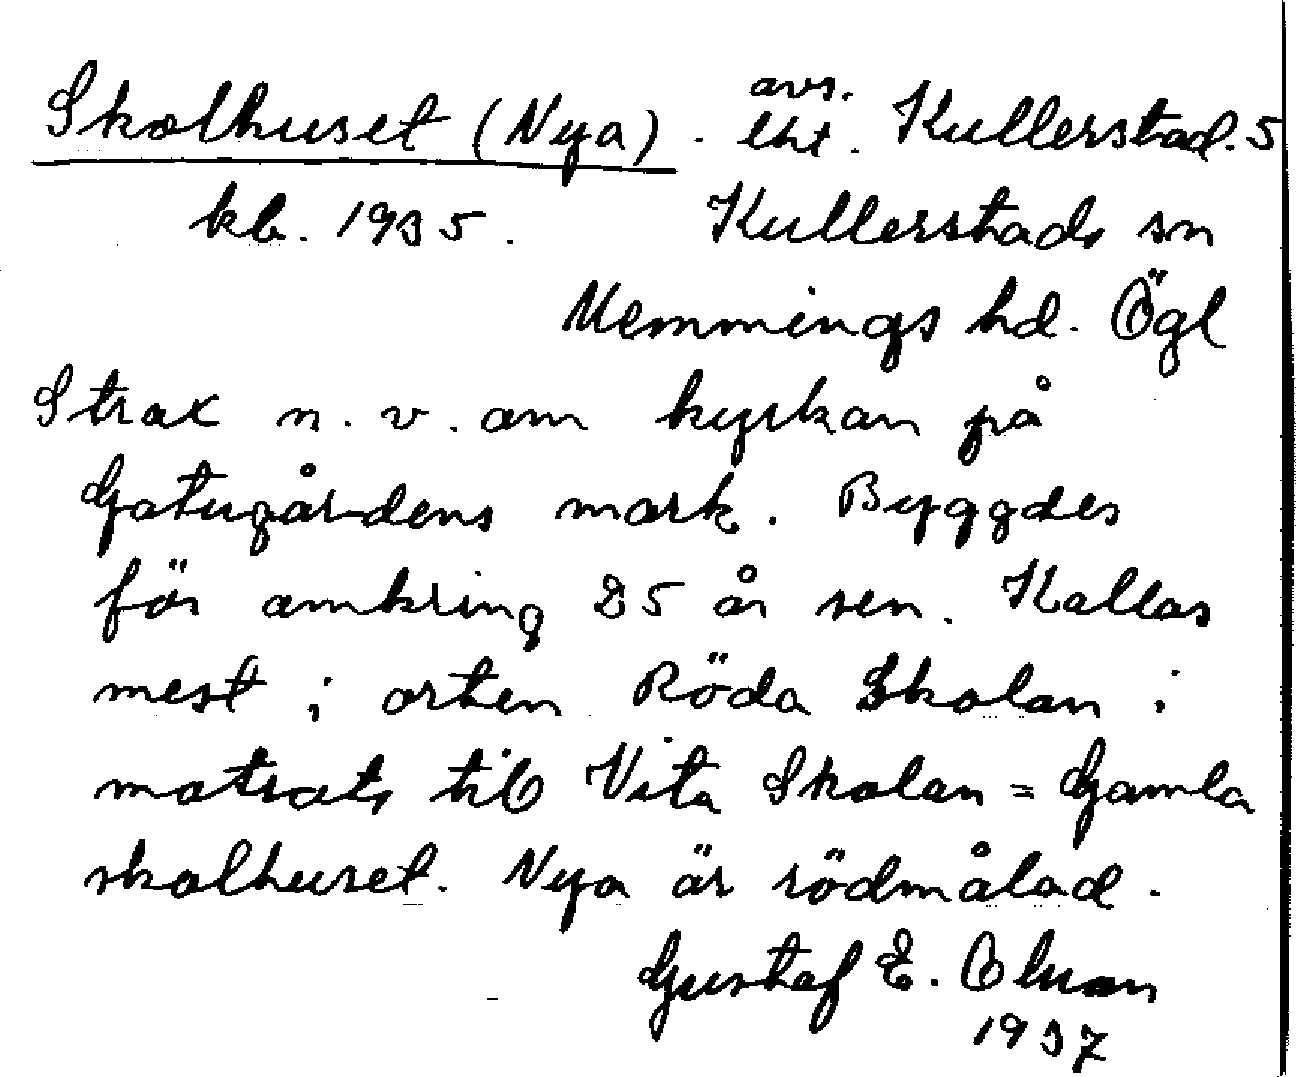 Skolhuset (Nya). avs. lht. Kullerstad. 5
kb. 1935. Kullerstads sn
Memmings hd. Ögl
Strax n. v. om kyrkan på
Gatugårdens mark. Byggdes
för omkring 25 år sen. Kallas
mest i orten Röda Skolan i
motsats till Vita Skolan = Gamla
skolhuset. Nya är rödmålad.
Gustaf E.
1937